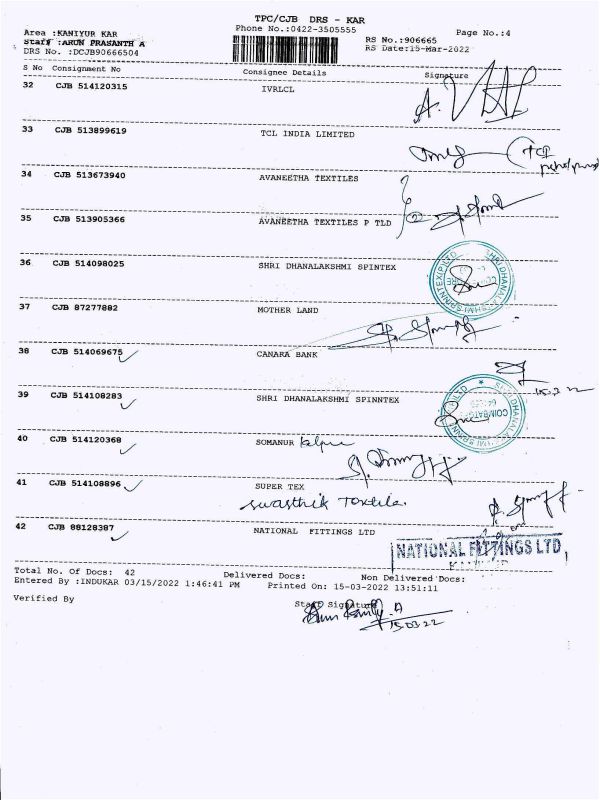 TPC/CJB DRS - KAR
Area :KANIYUR KAR Phone No.:0422-3505555 Page No.:4
Staff :ARUN PRASANTH A RS No.:906665
DRS No. :DCJB90666504 RS Date:15-Mar-2022
S No Consignment No Consignee Details Signature
32 CJB 514120315 IVRLCL
33 CJB 513899619 TCL INDIA LIMITED
34 CJB 513673940 AVANEETHA TEXTILES
35 CJB 513905366 AVANEETHA TEXTILES P TLD
36 CJB 514098025 SHRI DHANALAKSHMI SPINTEX
SHRI DHANALAKSHMI SPINNTEX (P) LTD
37 CJB 87277882 MOTHER LAND
38 CJB 514069675 CANARA BANK
15.3.22
39 CJB 514108283 SHRI DHANALAKSHMI SPINNTEX
COIMBATORE
40 CJB 514120368 SOMANUR
41 CJB 514108896 SUPER TEX
Swasthik Textile.
42 CJB 88128387 NATIONAL FITTINGS LTD
NATIONAL FITTINGS LTD,
Total No. Of Docs: 42 Delivered Docs: Non Delivered Docs:
Entered By :INDUKAR 03/15/2022 1:46:41 PM Printed On: 15-03-2022 13:51:11
Verified By Staff Signature
15.03.22